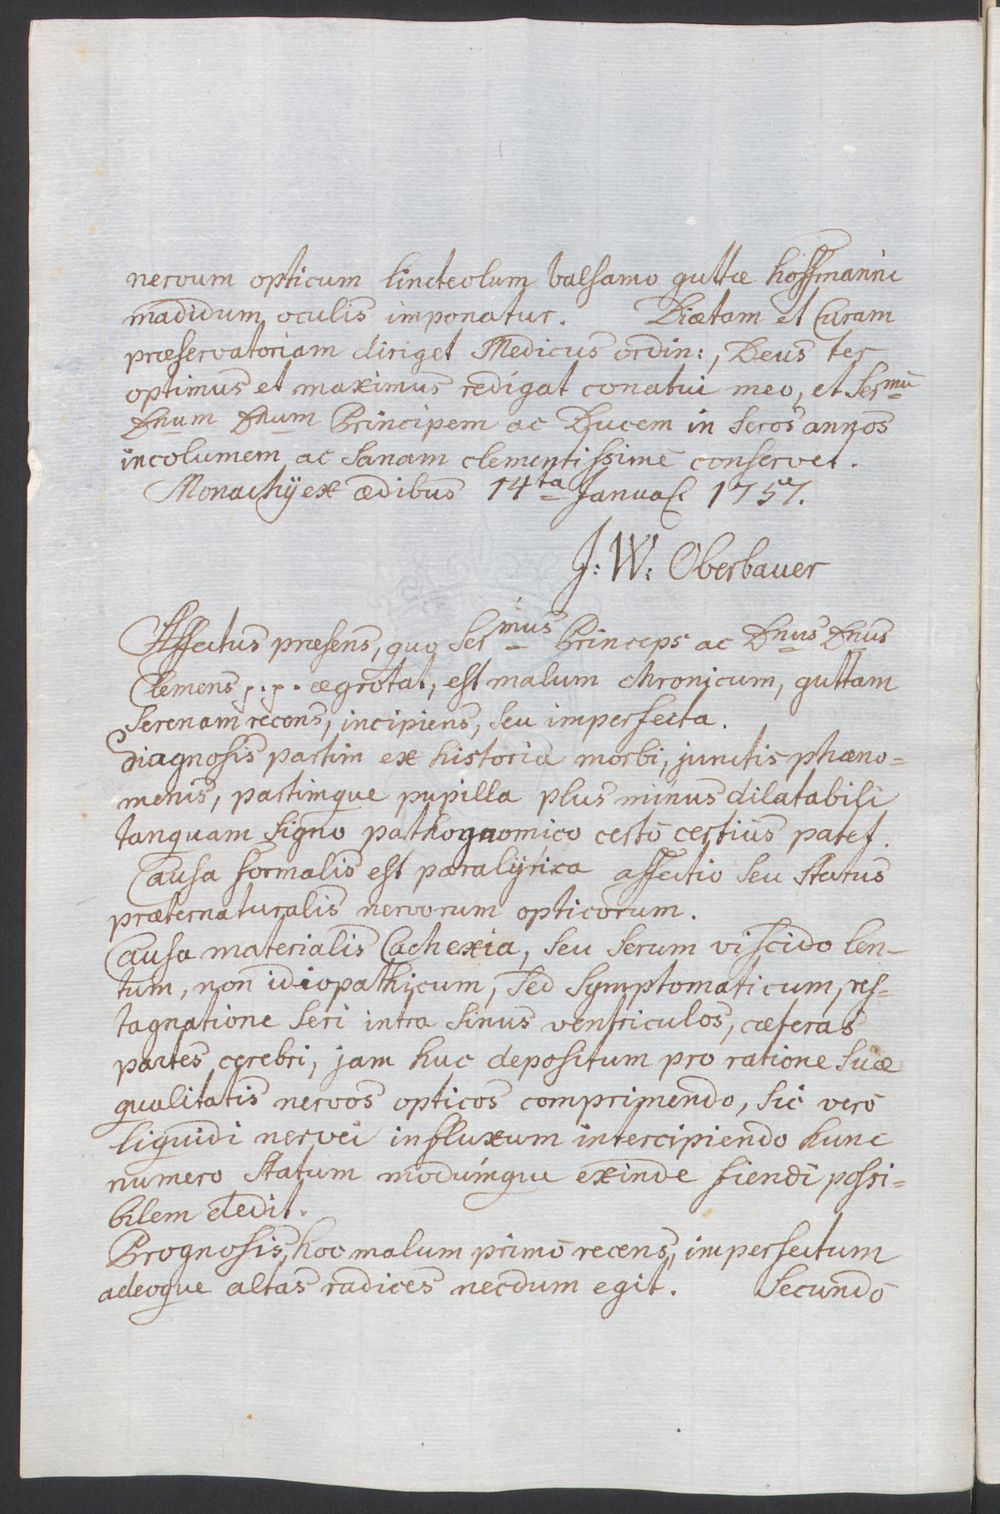 nervum opticum linteolum balsamo guttæ hoffmannic
madidum oculis imponatur. Diætam et Curam
præservatoriam diriget Medicus ordin:, Deus ter
optimus et maximus redigat conatui meo, et Sermũ
Dnum Dnum Principem ac Ducem in Seros annos
incolumem ac Sanam clementissimè conservet.
Monachij ex ædibus 14ta Januar 1757.
J: W: Oberbauer
Affectus præsens, quo Sermus Princeps ac Dnus Dnus
Clemens p. p. ægrotat, est malum chronicum, guttam
Serenam recens, incipiens, seu imperfecta.
Diagnosis partim ex historia morbi, junctis phæno=
menis, partimque pupilla plus minus dilatabili
tanquam Signo pathognomico certò certiùs patet.
Causa formalis est paralijtica affectio seu Status
præternaturalis nervorum opticorum.
Causa materialis Cachexia, seu Serum viscido len-
tum, non idiopathicum, Sed Symptomaticum, res-
tagnatione Seri intra Sinus ventriculos, cæteras
partes cerebri, jam huc depositum pro ratione Suæ
qualitatis nervos opticos comprimendo, Sic verò
liquidi nervei influxum intercipiendo hunc
numero Statum modumque exinde fiendi possi=
bilem dedit.
Prognosis, hoc malum primò recens, imperfectum
adeoque altas radices necdum egit. Secundò